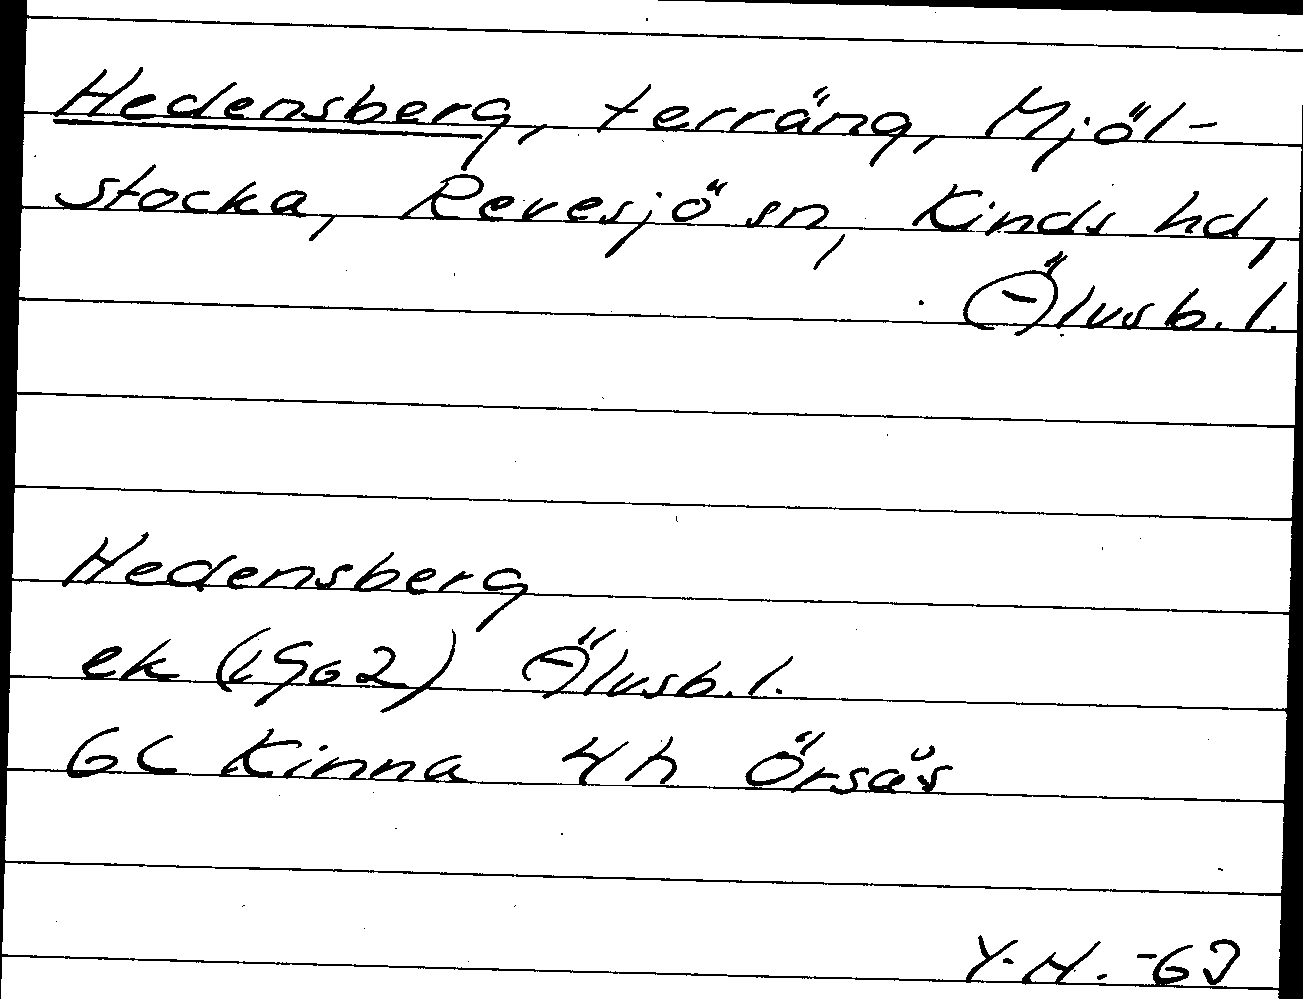 Hedensberg, terräng, Mjöl-
stocka, Revesjö sn, Kinds hd,
Älvsb. l.
Hedensberg
ek (1962) Älvsb. l.
6C Kinna 4h Örsås
Y.H. -63